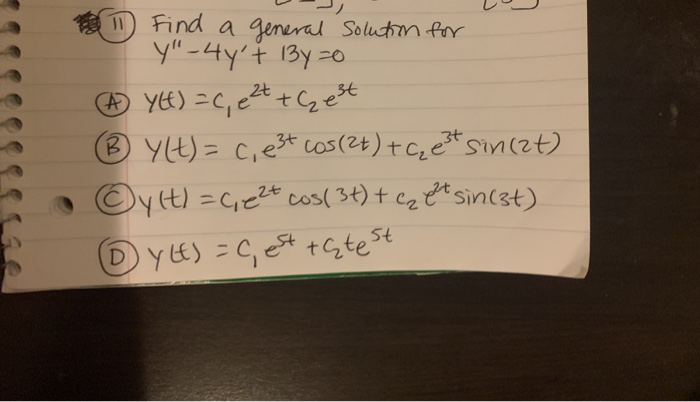 11 Find a general Solution for
y'' - 4y' + 13y = 0
A y(t) = c₁e^2t + c₂e^3t
B y(t) = c₁e^3t cos(2t) + c₂e^3t sin(2t)
C y(t) = c₁e^2t cos(3t) + c₂e^2t sin(3t)
D y(t) = c₁e^5t + c₂te^5t